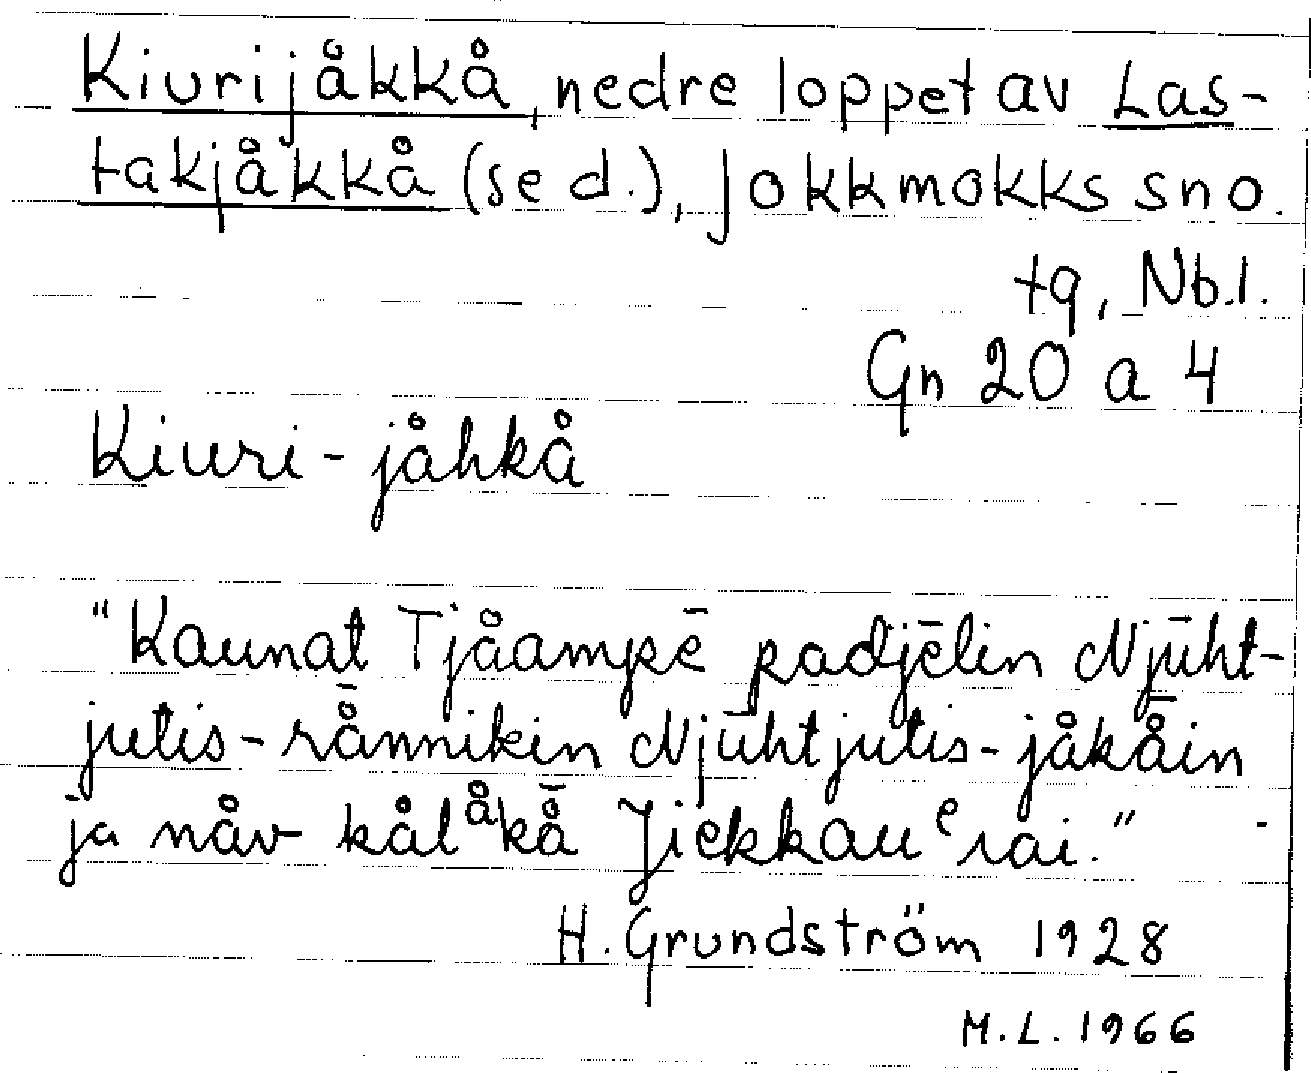 Kiurijåkkå, nedre loppet av Las-
takjåkkå (se d.), Jokkmokks sno.
tg, Nb.l.
Gn 20 a 4
Kiuri-jåhkå
"Kaunat Tjåampē padjēlin Njūht-
jutis-rå̄nnikin Njūhtjutis-jåkå̄in
ja nåv kålåkå̄ Jiekkauerai."
H. Grundström 1928
M.L. 1966